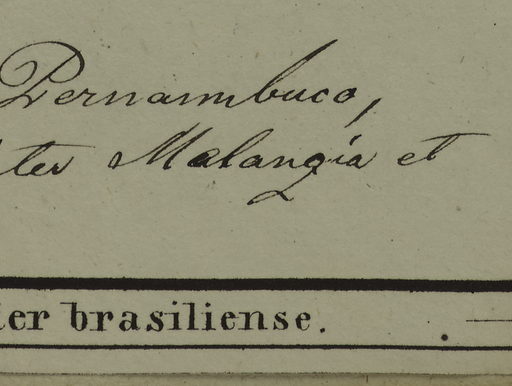 Pernambuco,
ter Malangia et
ter brasiliense.